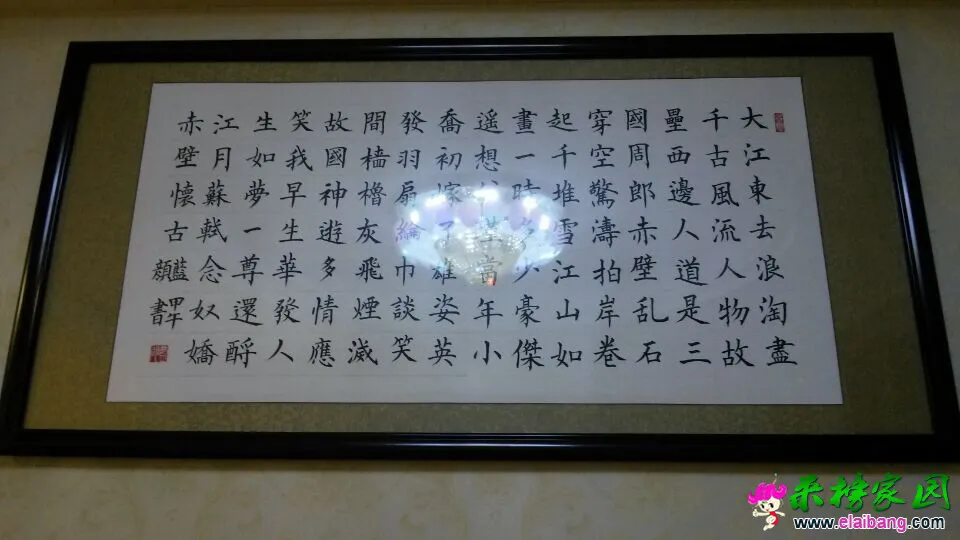 大江東去浪淘盡
千古風流人物故
壘西邊人道是三
國周郎赤壁乱石
穿空驚濤拍岸卷
起千堆雪江山如
畫一時多少豪傑
遥想公瑾當年小
喬初嫁了雄姿英
發羽扇綸巾談笑
間檣櫓灰飛煙滅
故國神遊多情應
笑我早生華發人
生如夢一尊還酹
江月蘇軾念奴嬌
赤壁懷古
顏書
采榜家园
www.elaibang.com